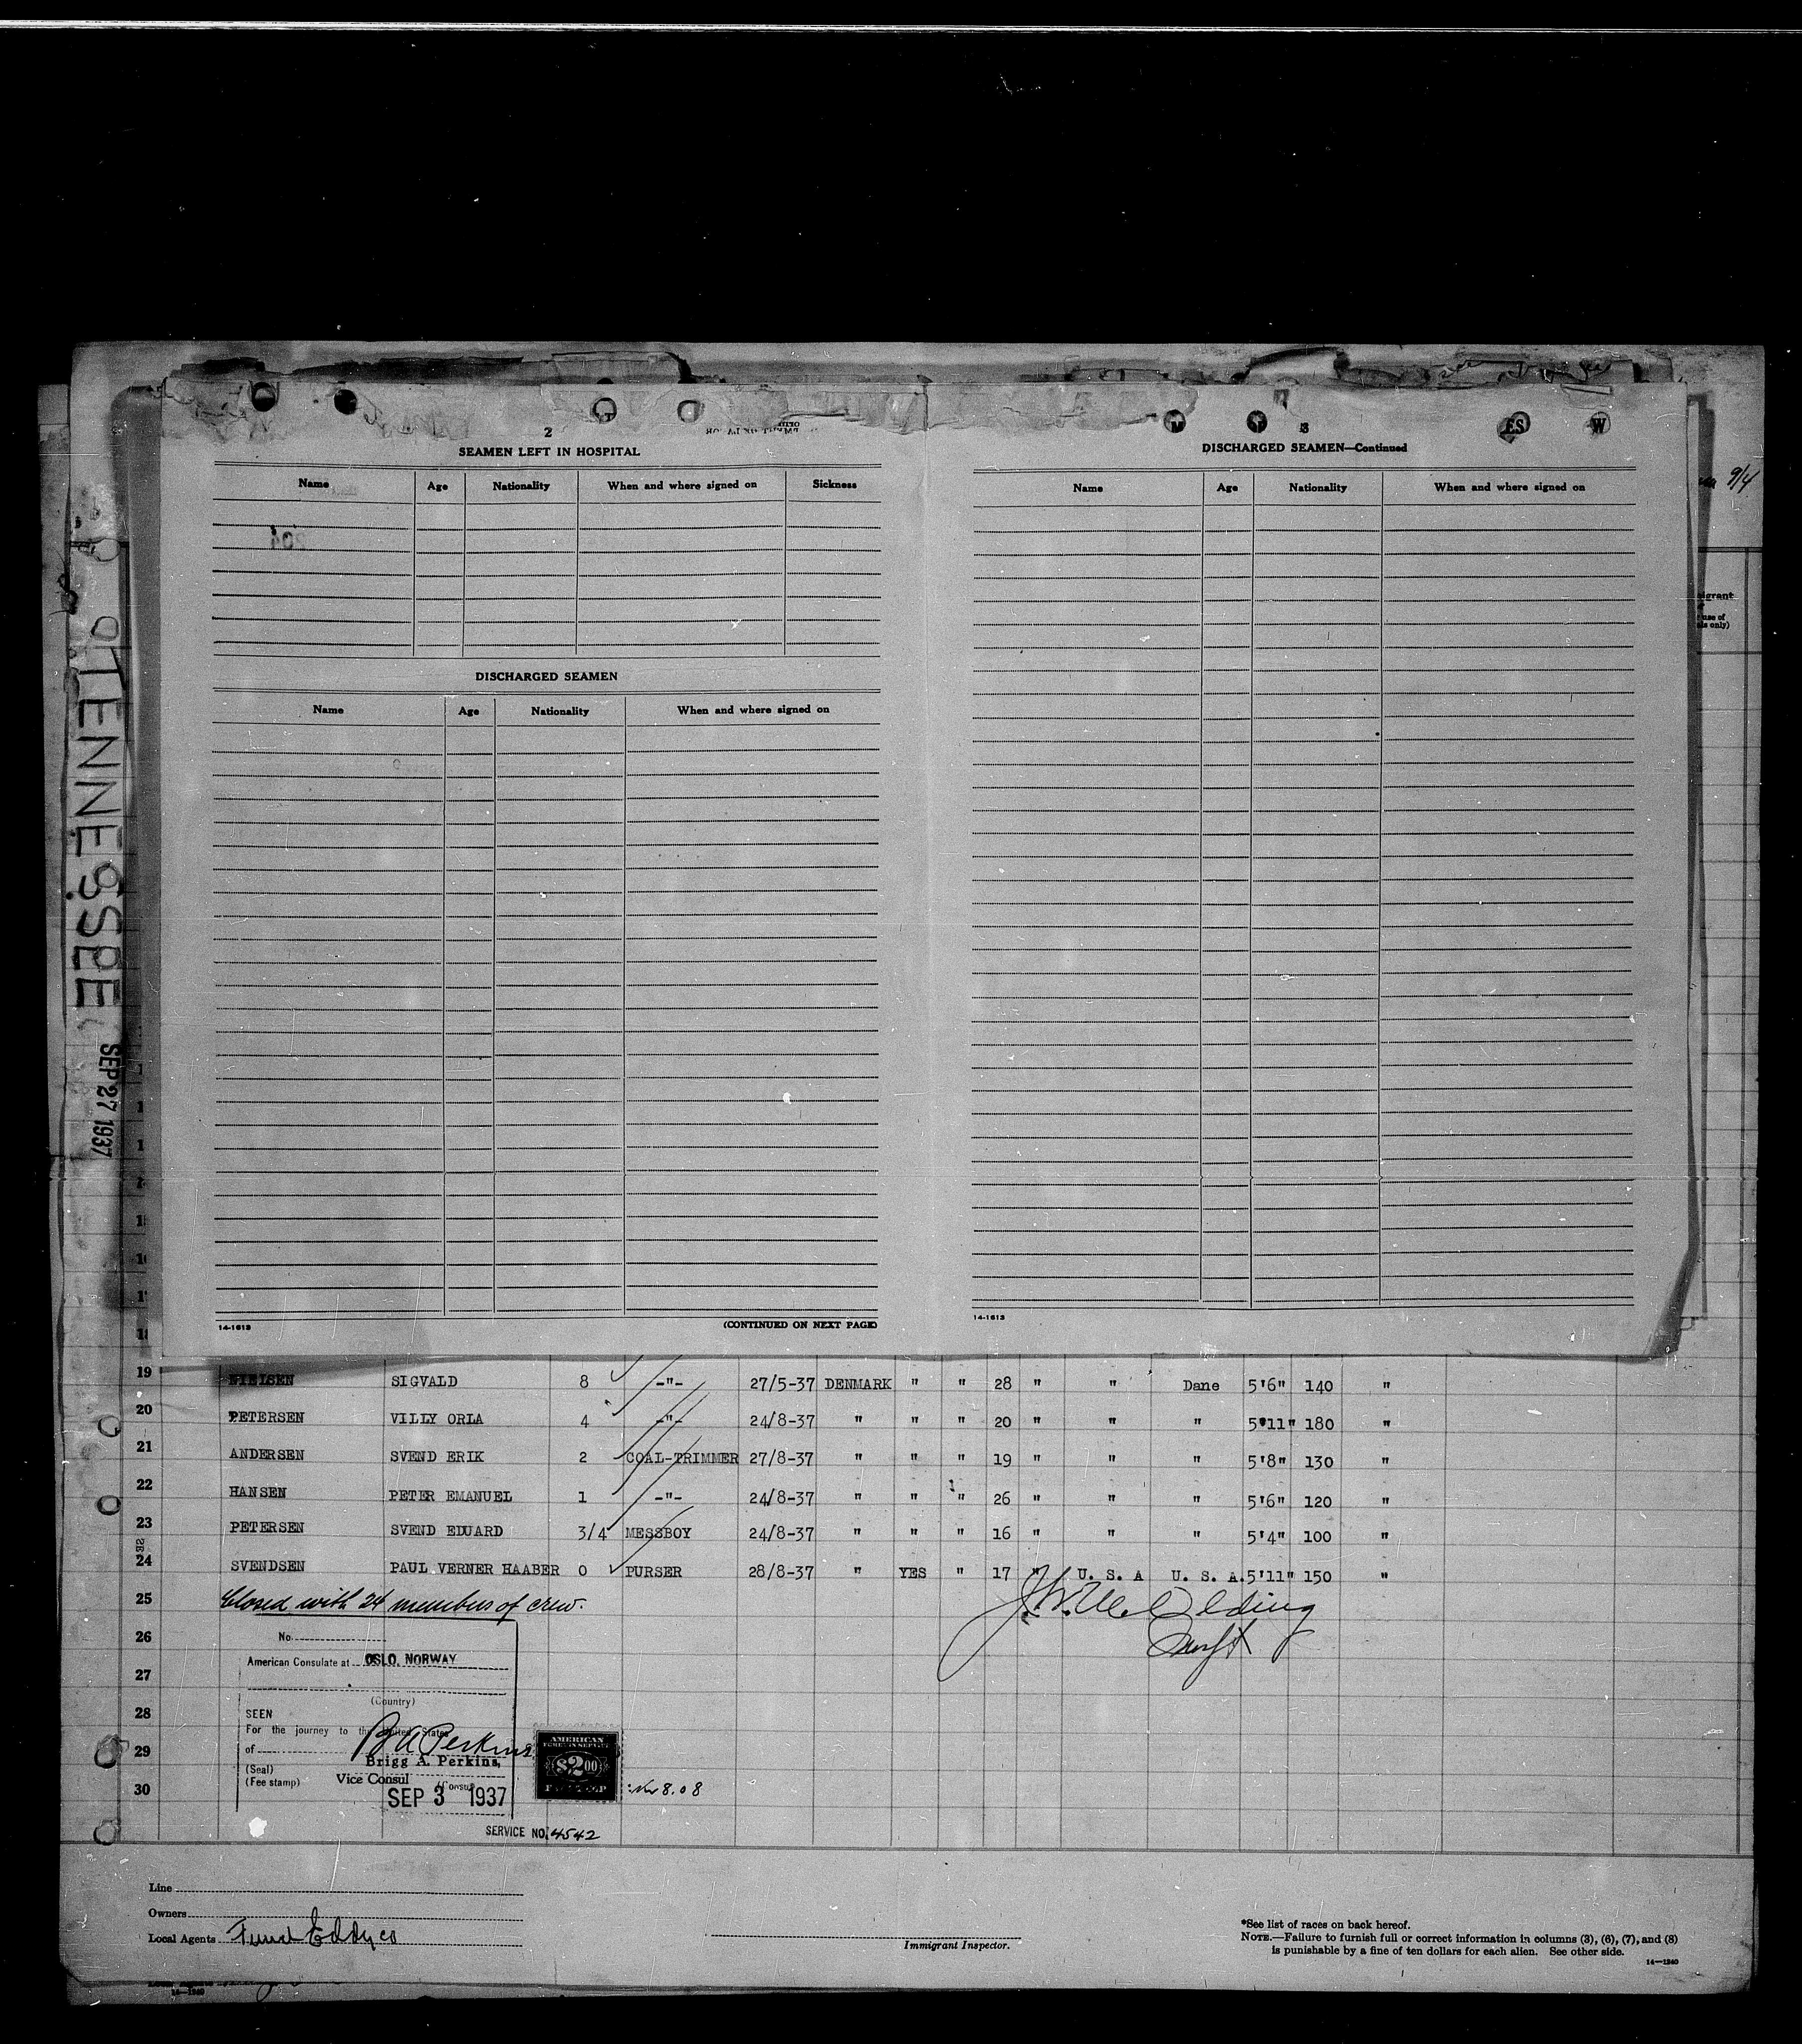 2
SEAMEN LEFT IN HOSPITAL
Name Age Nationality When and where signed on Sickness
DISCHARGED SEAMEN
Name Age Nationality When and where signed on
14-1613 (CONTINUED ON NEXT PAGE)
3
DISCHARGED SEAMEN—Continued
Name Age Nationality When and where signed on
14-1613
ES W
9/4
TENNESSEE
SEP 27 1937
19 NIELSEN SIGVALD 8 -"- 27/5-37 DENMARK " " 28 " " Dane 5'6" 140 "
20 PETERSEN VILLY ORLA 4 -"- 24/8-37 " " " 20 " " " 5'11" 180 "
21 ANDERSEN SVEND ERIK 2 COAL-TRIMMER 27/8-37 " " " 19 " " " 5'8" 130 "
22 HANSEN PETER EMANUEL 1 -"- 24/8-37 " " " 26 " " " 5'6" 120 "
23 PETERSEN SVEND EDUARD 3/4 MESSBOY 24/8-37 " " " 16 " " " 5'4" 100 "
24 SVENDSEN PAUL VERNER HAABER 0 PURSER 28/8-37 " YES " 17 " U. S. A U. S. A. 5'11" 150 "
25 Closed with 24 members of crew.
26 No.
American Consulate at OSLO, NORWAY
27
(Country)
28 SEEN
For the journey to the United States
of B A Perkins
29 Brigg A. Perkins,
(Seal)
(Fee stamp) Vice Consul (Consul
30 SEP 3 1937
AMERICAN
FOREIGN SERVICE
$2.00
FEE STAMP
8.08
SERVICE NO. 4542
Line
Owners
Local Agents
Immigrant Inspector.
*See list of races on back hereof.
NOTE.—Failure to furnish full or correct information in columns (3), (6), (7), and (8)
is punishable by a fine of ten dollars for each alien. See other side.
14—1240
14—1240